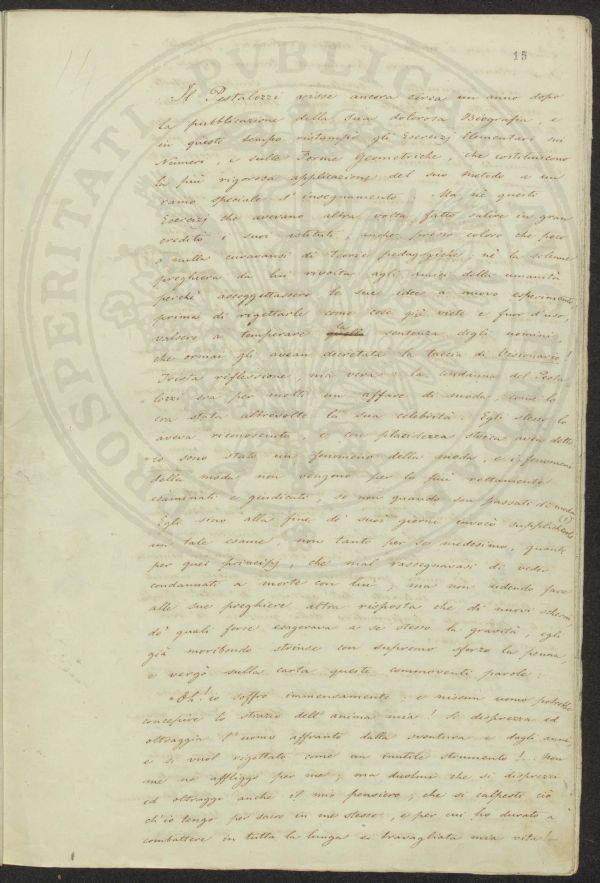 15
Il Pestalozzi visse ancora circa un anno dopo
la pubblicazione della sua dolorosa Biografia, e
in questo tempo ristampò gli Esercizj Elementari sui
Numeri, e sulle Forme Geometriche, che costituiscono
la più rigorosa applicazione del suo metodo a un
ramo speciale d'insegnamento. Ma nè questi
Esercizj che avevano altra volta fatto salire in gran
credito i suoi istituti, anche presso coloro che poco
o nulla curavansi di teorie pedagogiche; nè la solenne
preghiera da lui rivolta agli amici della umanità
perchè assoggettassero le sue idee a nuovo esperimento
prima di rigettarle come cose già viete e fuor d'uso,
valsero a temperare la sentenza degli uomini,
che ormai gli avean decretata la taccia di Visionario!
Trista riflessione, ma vera: la condanna del Pesta-
lozzi era per molti un affare di moda, come lo
era stata altrevolte la sua celebrità. Egli stesso lo
aveva riconosciuto, e con placidezza stoica avea detto
"io sono stato un fenomeno della moda, e i fenomeni
della moda non vengono per lo più rettamente
esaminati e giudicati, se non quando son passati di moda (1)
Egli sino alla fine de' suoi giorni invocò supplichevole
un tale esame, non tanto per se medesimo, quanto
per quei principj, che mal rassegnavasi di veder
condannati a morte con lui; ma non udendo fare
alle sue preghiere altra risposta che di nuovi scherni
de' quali forse esagerava a se stesso la gravità, egli
già moribondo strinse con supremo sforzo la penna,
e vergò sulla carta queste commoventi parole:
"Oh! io soffro immensamente: e nissun uomo potrebbe
concepire lo strazio dell'anima mia! Si disprezza ed
oltraggia l'uomo affranto dalla sventura e dagli anni
e si vuol rigettato come un inutile strumento!.. Non
me ne affliggo per me; ma duolmi che si disprezzi
ed oltraggi anche il mio pensiero, che si calpesti ciò
ch'io tengo per sacro in me stesso, e per cui ho durato a
combattere in tutta la lunga e travagliata mia vita!
PROSPERITATI PUBLIC